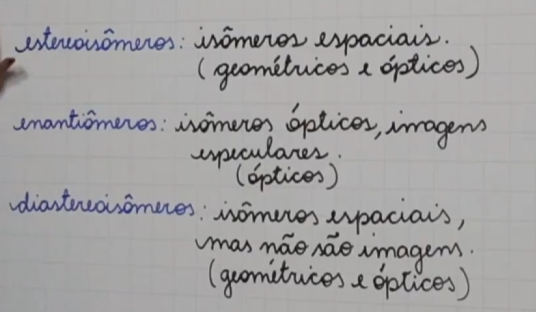 estereoisômeros: isômeros espaciais.
(geométricos e ópticos)
enantiômeros: isômeros ópticos, imagens
especulares.
(ópticos)
diastereoisômeros: isômeros espaciais,
mas não são imagens.
(geométricos e ópticos)